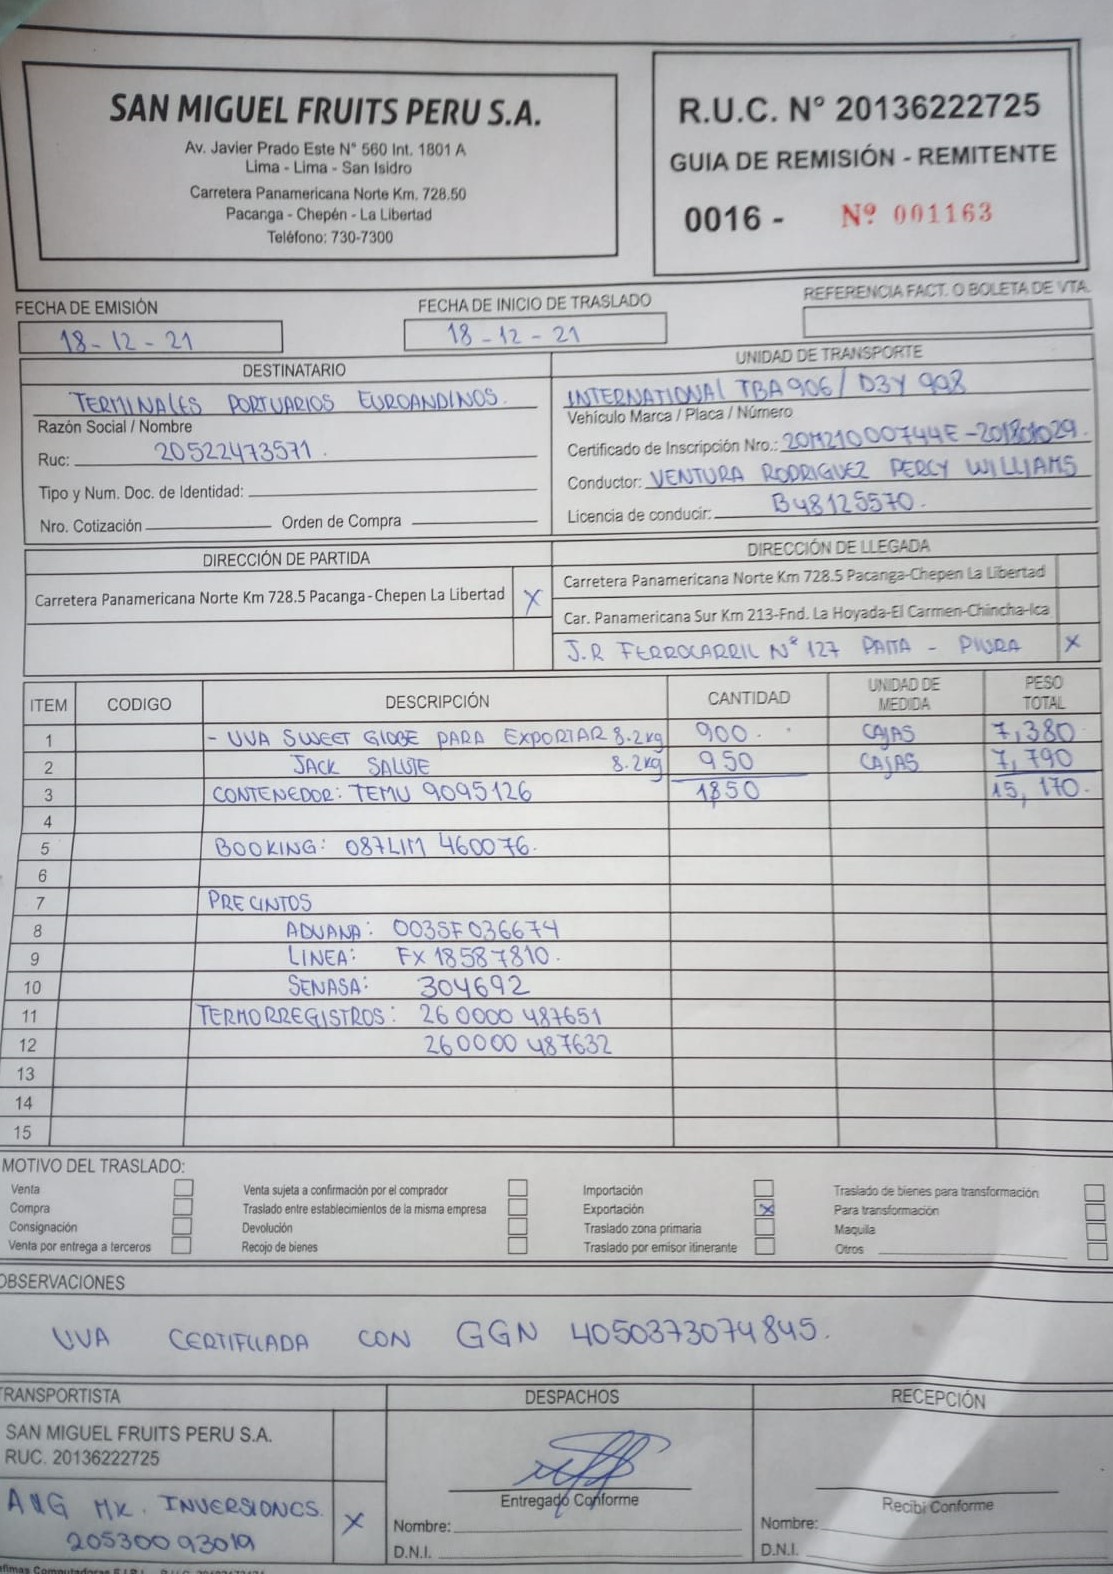 SAN MIGUEL FRUITS PERU S.A.
Av. Javier Prado Este N° 560 Int. 1801 A
Lima - Lima - San Isidro
Carretera Panamericana Norte Km. 728.50
Pacanga - Chepén - La Libertad
Teléfono: 730-7300
R.U.C. N° 20136222725
GUIA DE REMISIÓN - REMITENTE
0016 - Nº 001163
FECHA DE EMISIÓN
18-12-21
FECHA DE INICIO DE TRASLADO
18-12-21
REFERENCIA FACT. O BOLETA DE VTA.
DESTINATARIO
TERMINALES PORTUARIOS EUROANDINOS.
Razón Social / Nombre
Ruc: 20522473571.
Tipo y Num. Doc. de Identidad:
Nro. Cotización Orden de Compra
UNIDAD DE TRANSPORTE
INTERNATIONAL TBA 906 / D3Y 998
Vehículo Marca / Placa / Número
Certificado de Inscripción Nro.: 20M21000744E-201801029.
Conductor: VENTURA RODRIGUEZ PERCY WILLIAMS
Licencia de conducir: B48125570.
DIRECCIÓN DE PARTIDA
Carretera Panamericana Norte Km 728.5 Pacanga-Chepen La Libertad X
DIRECCIÓN DE LLEGADA
Carretera Panamericana Norte Km 728.5 Pacanga-Chepen La Libertad
Car. Panamericana Sur Km 213-Fnd. La Hoyada-El Carmen-Chincha-Ica
J.R FERROCARRIL N° 127 PAITA - PIURA X
ITEM CODIGO DESCRIPCIÓN CANTIDAD UNIDAD DE MEDIDA PESO TOTAL
1 - UVA SWEET GLOBE PARA EXPORTAR 8.2kg 900. CAJAS 7,380
2 JACK SALUTE 8.2kg 950 CAJAS 7,790
3 CONTENEDOR: TEMU 9095126 1850 15,170.
4
5 BOOKING: 087LIM 460076.
6
7 PRECINTOS
8 ADUANA: 003SF036674
9 LINEA: FX 18587810.
10 SENASA: 304692
11 TERMORREGISTROS: 26 0000 487651
12 260000 487632
13
14
15
MOTIVO DEL TRASLADO:
Venta
Compra
Consignación
Venta por entrega a terceros
Venta sujeta a confirmación por el comprador
Traslado entre establecimientos de la misma empresa
Devolución
Recojo de bienes
Importación
Exportación X
Traslado zona primaria
Traslado por emisor itinerante
Traslado de bienes para transformación
Para transformación
Maquila
Otros
OBSERVACIONES
UVA CERTIFICADA CON GGN 4050373074845.
TRANSPORTISTA
SAN MIGUEL FRUITS PERU S.A.
RUC. 20136222725
A&G MK. INVERSIONES. X
20530093019
DESPACHOS
Entregado Conforme
Nombre:
D.N.I.
RECEPCIÓN
Recibi Conforme
Nombre:
D.N.I.